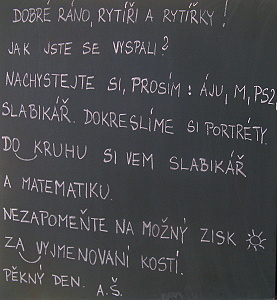 DOBRÉ RÁNO, RYTÍŘI A RYTÍŘKY!
JAK JSTE SE VYSPALI?
NACHYSTEJTE SI, PROSÍM: ÁJU, M, PS2,
SLABIKÁŘ. DOKRESLÍME SI PORTRÉTY.
DO KRUHU SI VEM SLABIKÁŘ
A MATEMATIKU.
NEZAPOMEŇTE NA MOŽNÝ ZISK
ZA VYJMENOVANÍ KOSTÍ.
PĚKNÝ DEN. A.Š.